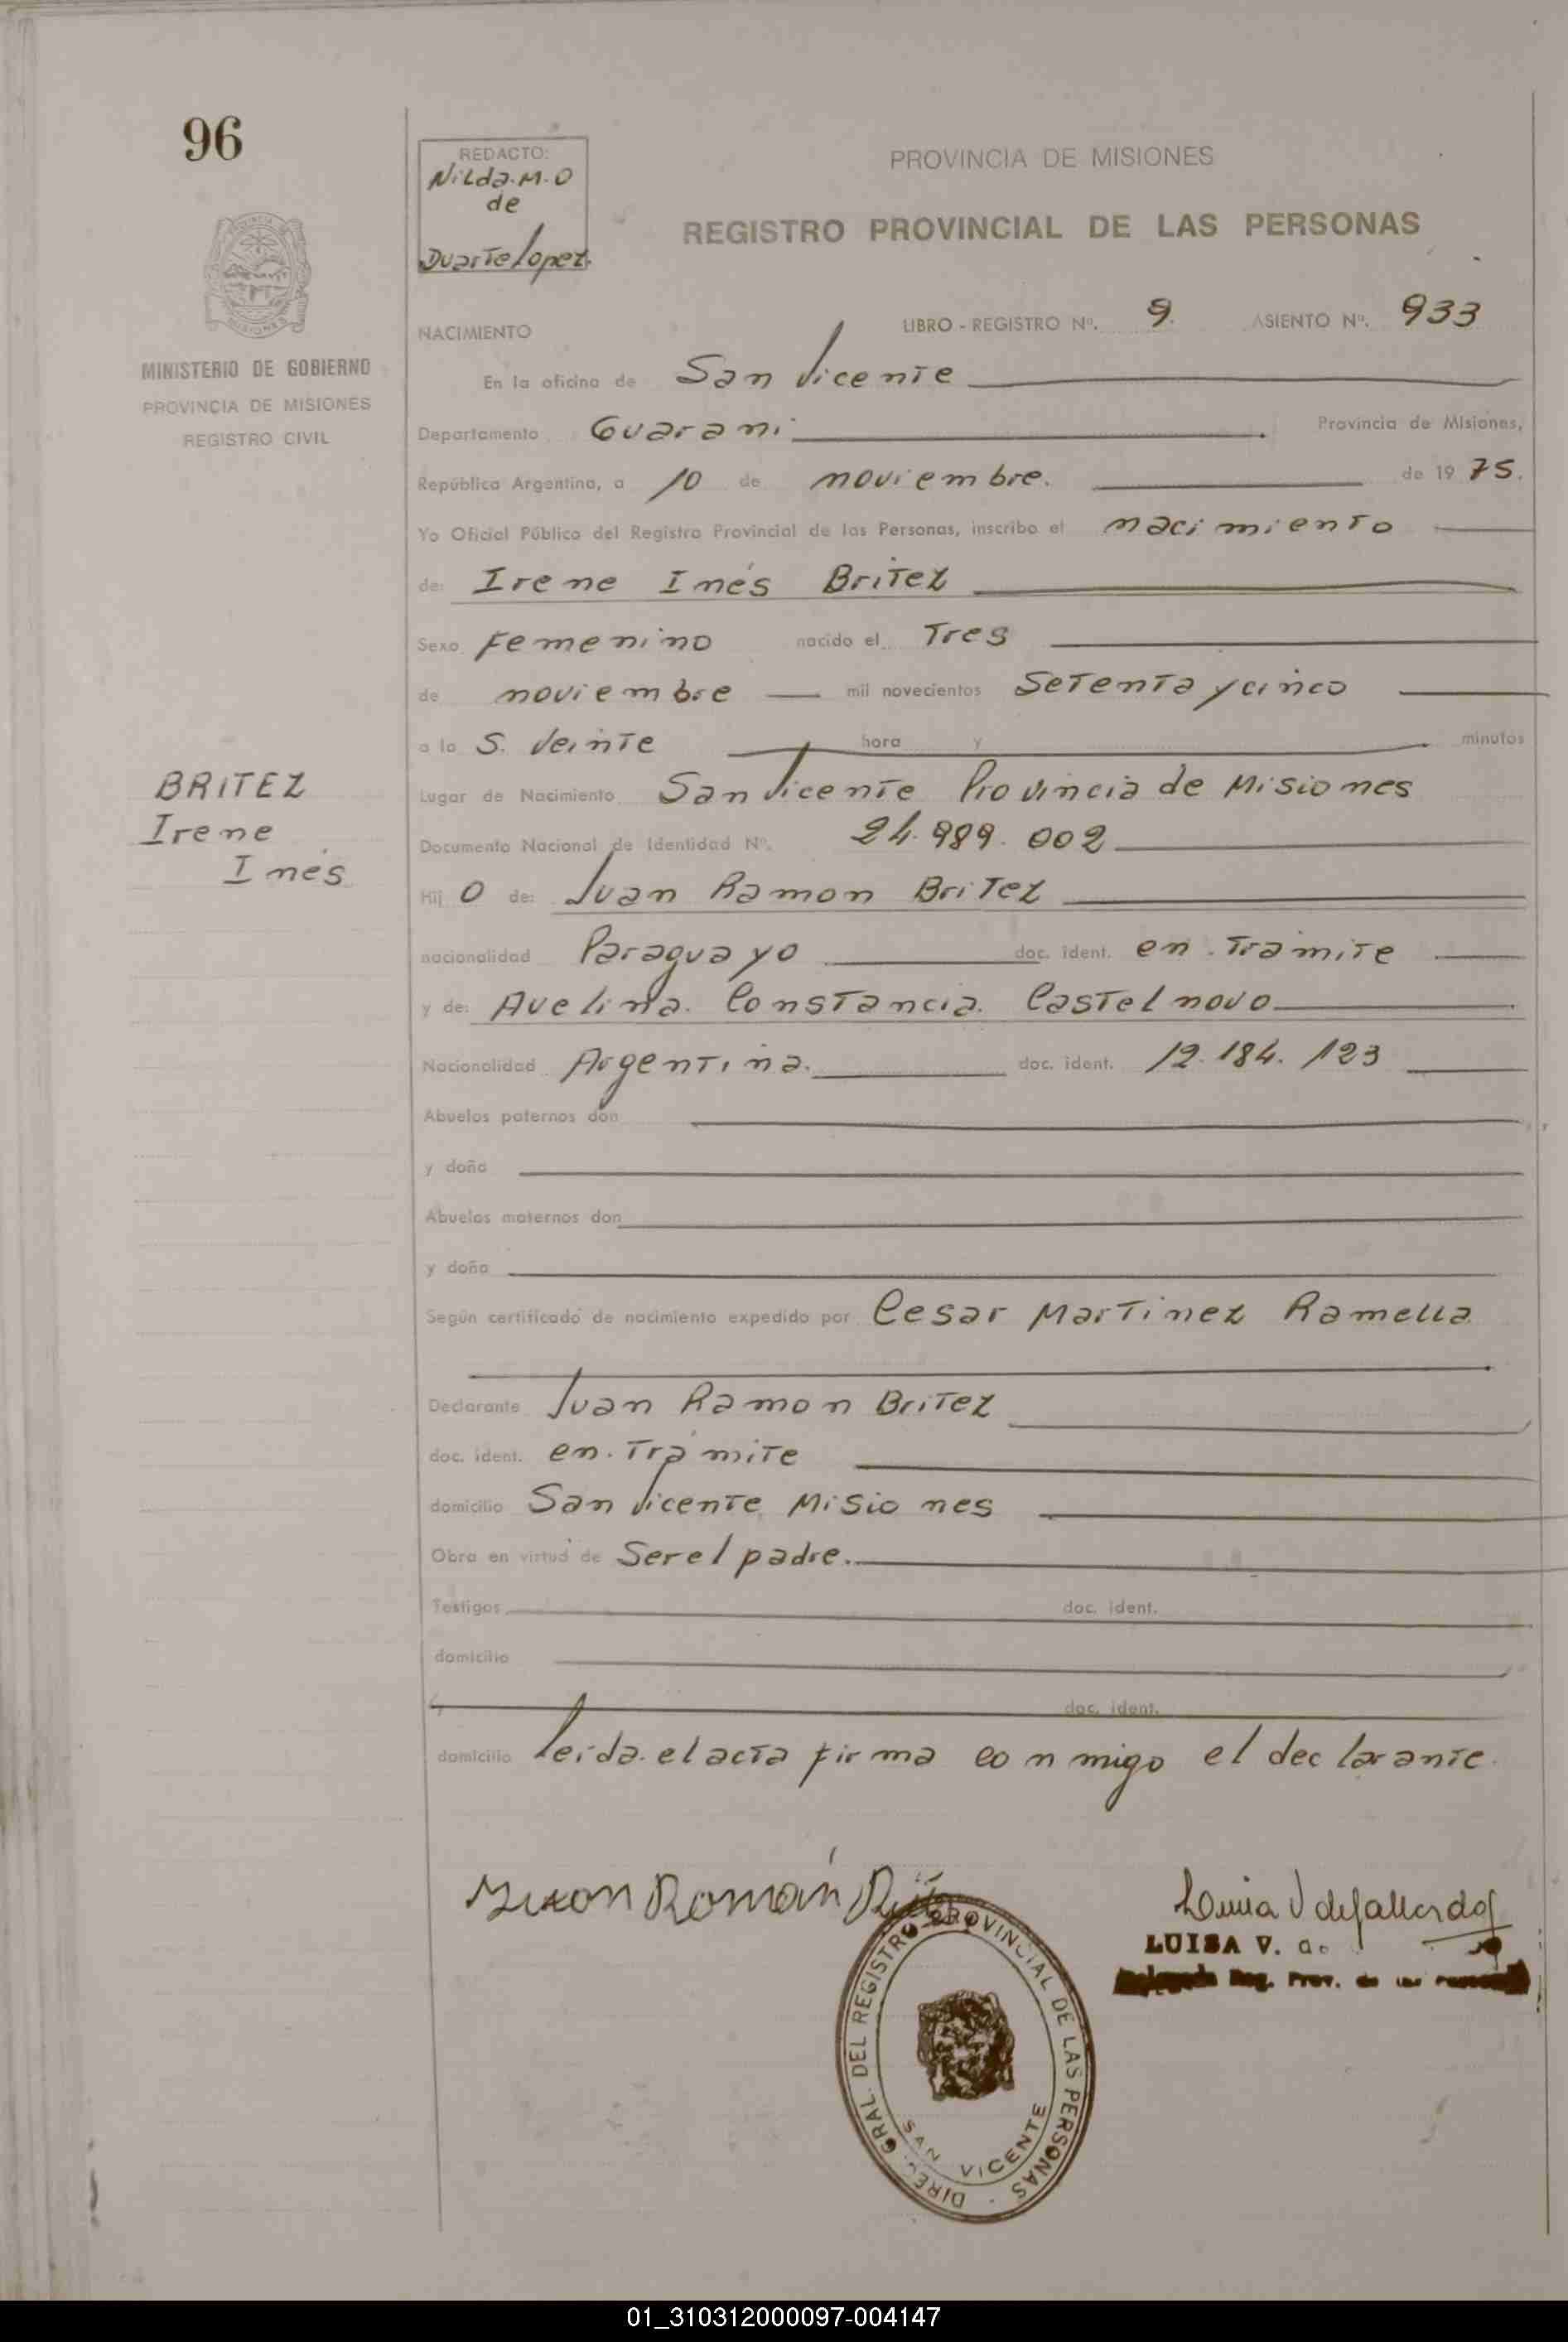 96
REDACTO:
Nilda.M.O
de
Duarte Lopez.
PROVINCIA DE MISIONES
REGISTRO PROVINCIAL DE LAS PERSONAS
NACIMIENTO
LIBRO - REGISTRO Nº. 9. ASIENTO Nº. 933
MINISTERIO DE GOBIERNO
PROVINCIA DE MISIONES
REGISTRO CIVIL
En la oficina de San Vicente
Departamento Guarani Provincia de Misiones,
República Argentina, a 10 de noviembre. de 19 75.
Yo Oficial Público del Registro Provincial de las Personas, inscribo el nacimiento
de: Irene Inés Britez
Sexo Femenino nacido el Tres
de noviembre mil novecientos Setenta y cinco
a la S. Veinte hora y minutos
BRITEZ
Irene
Inés
Lugar de Nacimiento San Vicente Provincia de Misiones
Documento Nacional de Identidad Nº. 24.989.002
Hij O de: Juan Ramon Britez
nacionalidad Paraguayo doc. ident. en.tramite
y de: Avelina. Constancia. Castelnovo
Nacionalidad Argentina. doc. ident. 12.184.123
Abuelos paternos don
y doña
Abuelos maternos don
y doña
Según certificado de nacimiento expedido por Cesar Martinez Ramella
Declarante Juan Ramon Britez
doc. ident. en.tramite
domicilio San Vicente Misiones
Obra en virtud de Ser el padre.
Testigos doc. ident.
domicilio
y doc. ident.
domicilio leida.el acta firma conmigo el declarante.
Román
LUISA V. de
Reg. Prov. de las
DIREC. GRAL. DEL REGISTRO PROVINCIAL DE LAS PERSONAS
SAN VICENTE
01_310312000097-004147